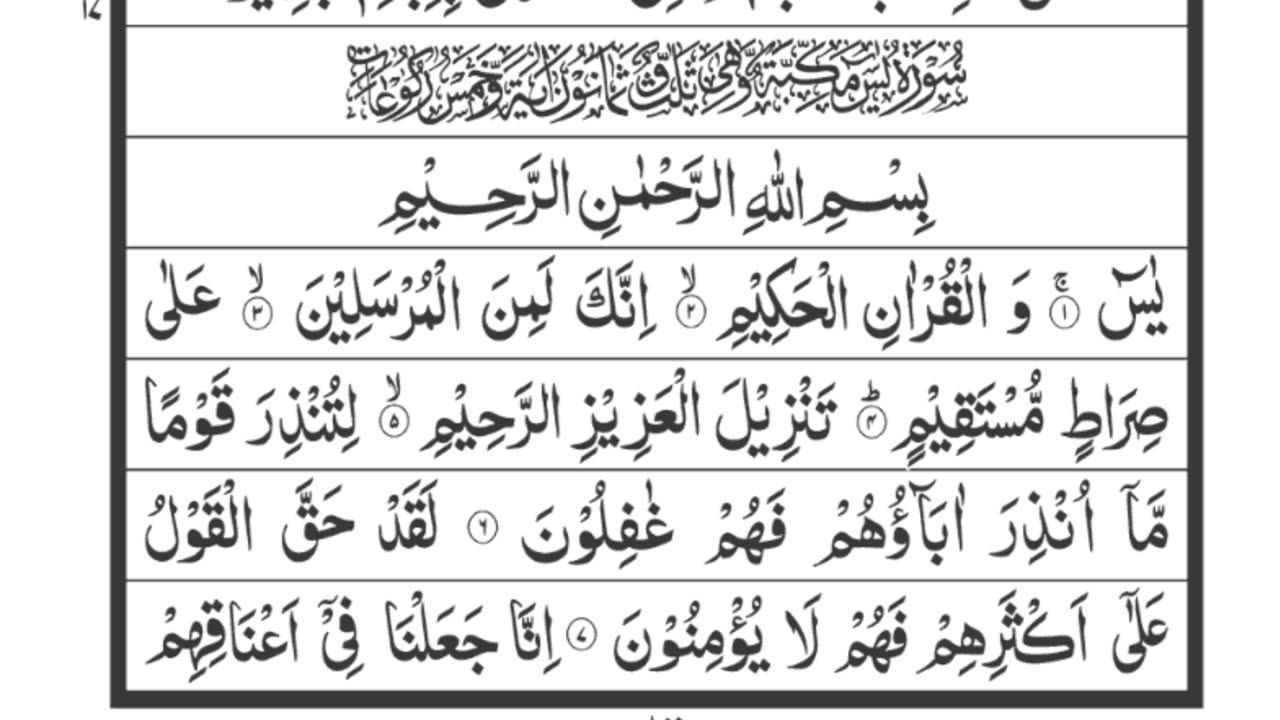 سُوْرَةُ يٰسٓ مَكِّيَّةٌ وَّهِيَ ثَلٰثٌ وَّثَمَانُوْنَ اٰيَةً وَّخَمْسُ رُكُوْعَاتٍ
بِسْمِ اللّٰهِ الرَّحْمٰنِ الرَّحِيْمِ
يٰسٓ ۚ‏﴿۱﴾ وَ الْقُرْاٰنِ الْحَكِيْمِ ۙ‏﴿۲﴾ اِنَّكَ لَمِنَ الْمُرْسَلِيْنَ ۙ‏﴿۳﴾ عَلٰى
صِرَاطٍ مُّسْتَقِيْمٍ ؕ‏﴿۴﴾ تَنْزِيْلَ الْعَزِيْزِ الرَّحِيْمِ ۙ‏﴿۵﴾ لِتُنْذِرَ قَوْمًا
مَّاۤ اُنْذِرَ اٰبَآؤُهُمْ فَهُمْ غٰفِلُوْنَ ﴿۶﴾ لَقَدْ حَقَّ الْقَوْلُ
عَلٰۤى اَكْثَرِهِمْ فَهُمْ لَا يُؤْمِنُوْنَ ﴿۷﴾ اِنَّا جَعَلْنَا فِيْۤ اَعْنَاقِهِمْ